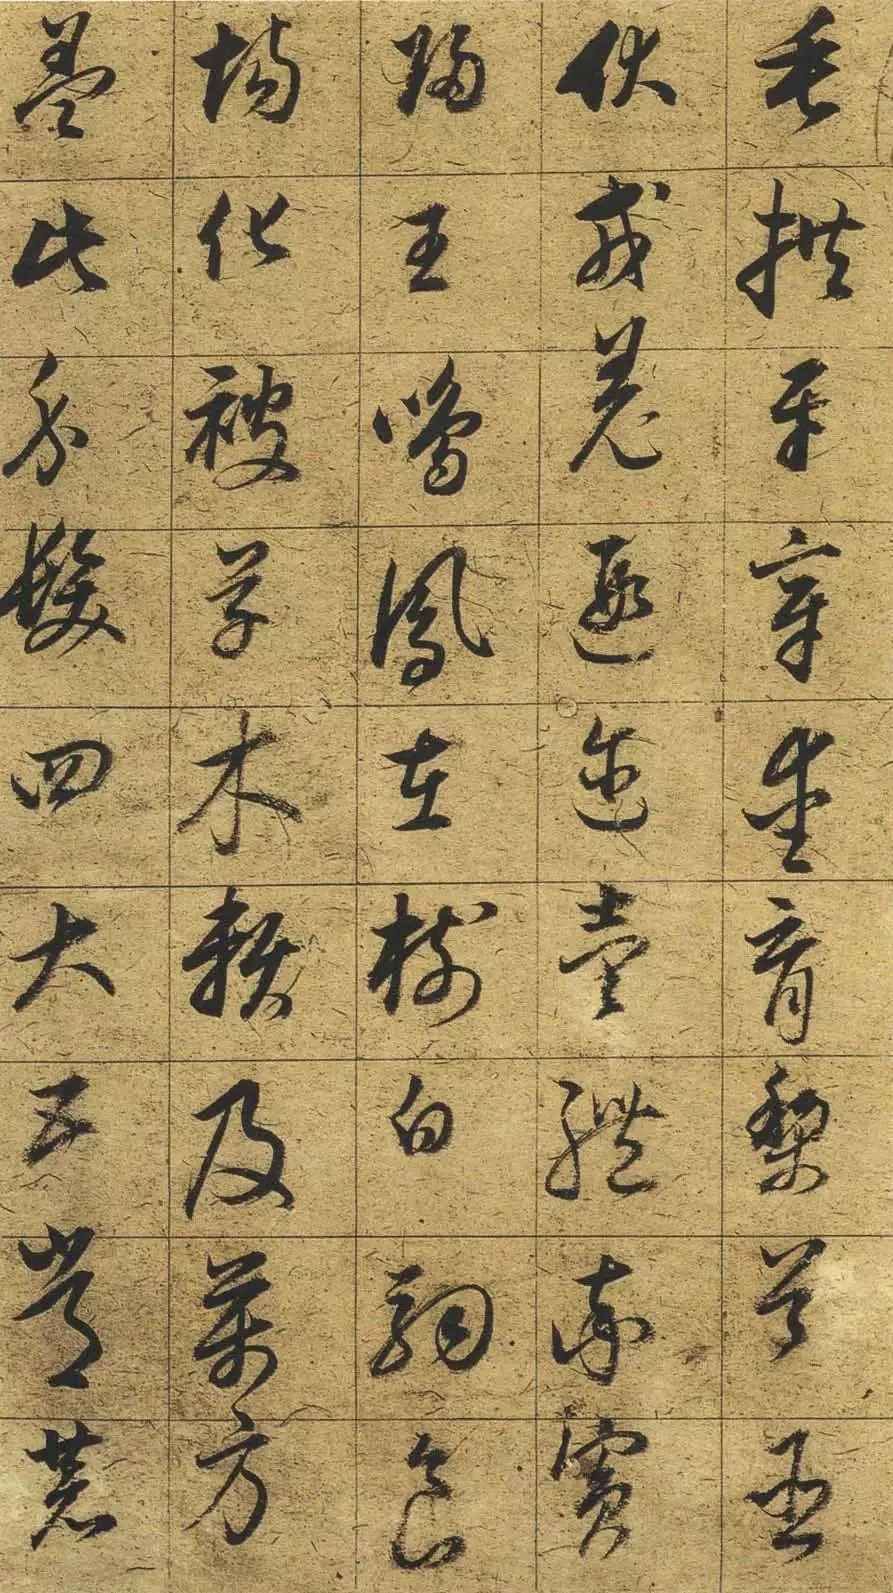 垂拱平章愛育黎首臣
伏戎羌遐邇壹體率賓
歸王鳴鳳在樹白駒食
場化被草木賴及萬方
蓋此身髮四大五常恭